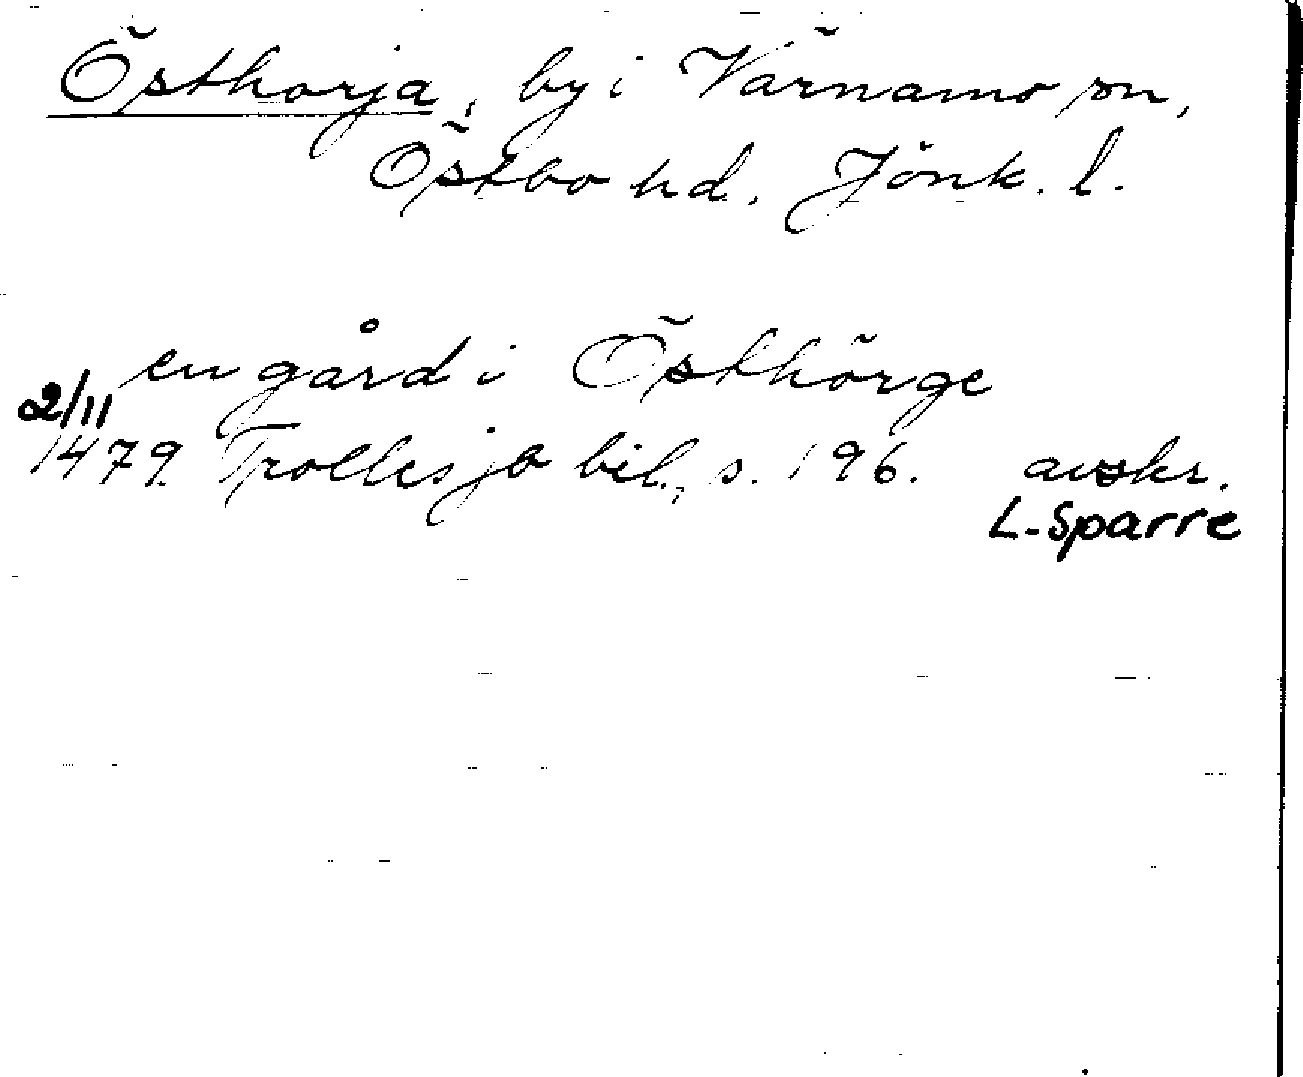 Östhorja, by i Värnamo sn,
Östbo hd. Jönk. l.
en gård i Östhörge
2/11
1479. Trolles jb bil., s. 196. avskr.
L-Sparre